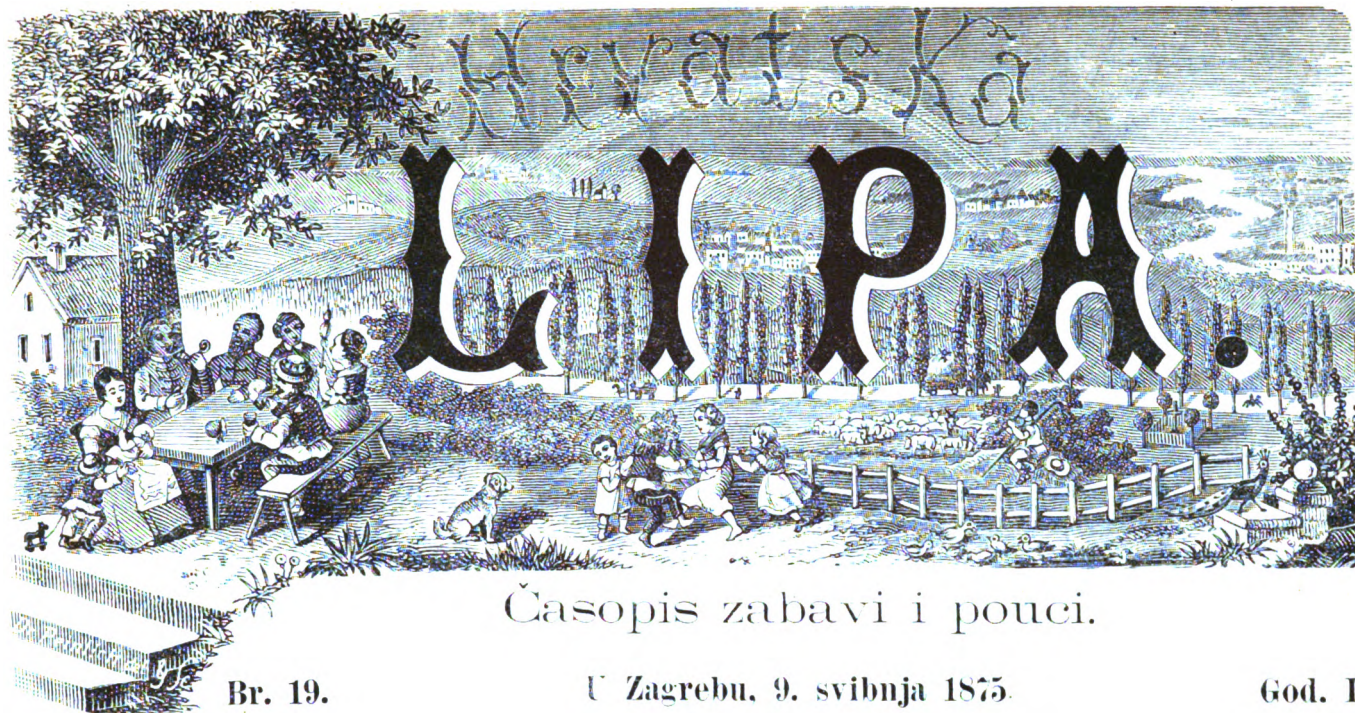 Hrvatska
LIPA.
Časopis zabavi i pouci.
Br. 19. U Zagrebu, 9. svibnja 1875. God. I